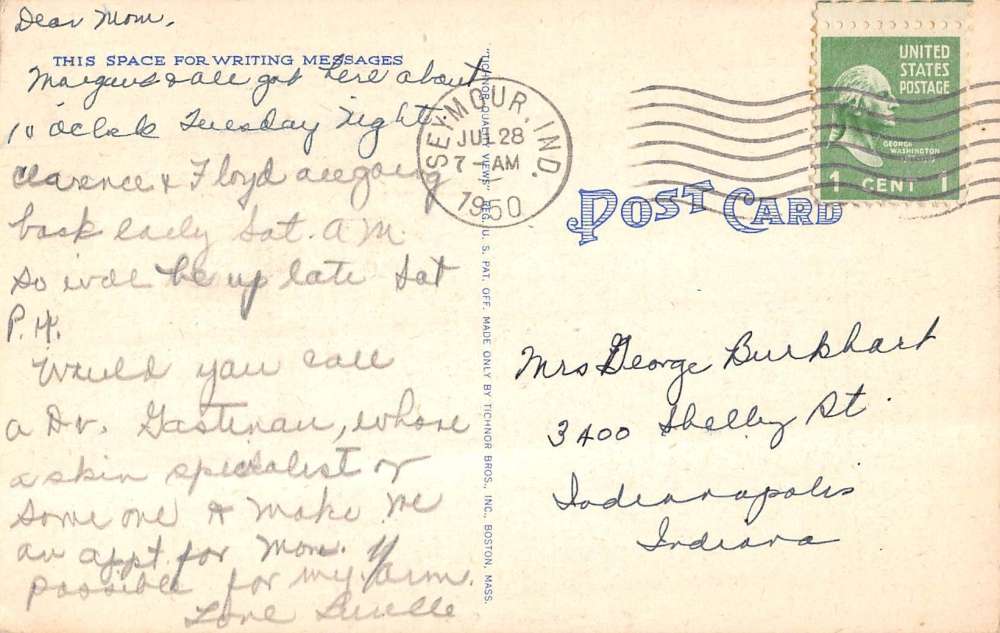 Dear Mom,
THIS SPACE FOR WRITING MESSAGES
& all got here about
10 oclock Tuesday night
Clarence & Floyd are going
back early Sat. A M.
So will be up late Sat
P.M.
Would you call
a Dr. Gastinau, whose
a skin specialist or
some one & make me
an appt. for Mon. if
possible for my arm.
Love Luelle
"TICHNOR QUALITY VIEWS" REG. U. S. PAT. OFF. MADE ONLY BY TICHNOR BROS., INC., BOSTON, MASS.
SEYMOUR, IND.
JUL 28
7-AM
1950
UNITED
STATES
POSTAGE
GEORGE
WASHINGTON
1 CENT 1
POST CARD
Mrs George Burkhart
3400 Shelby St.
Indianapolis
Indiana